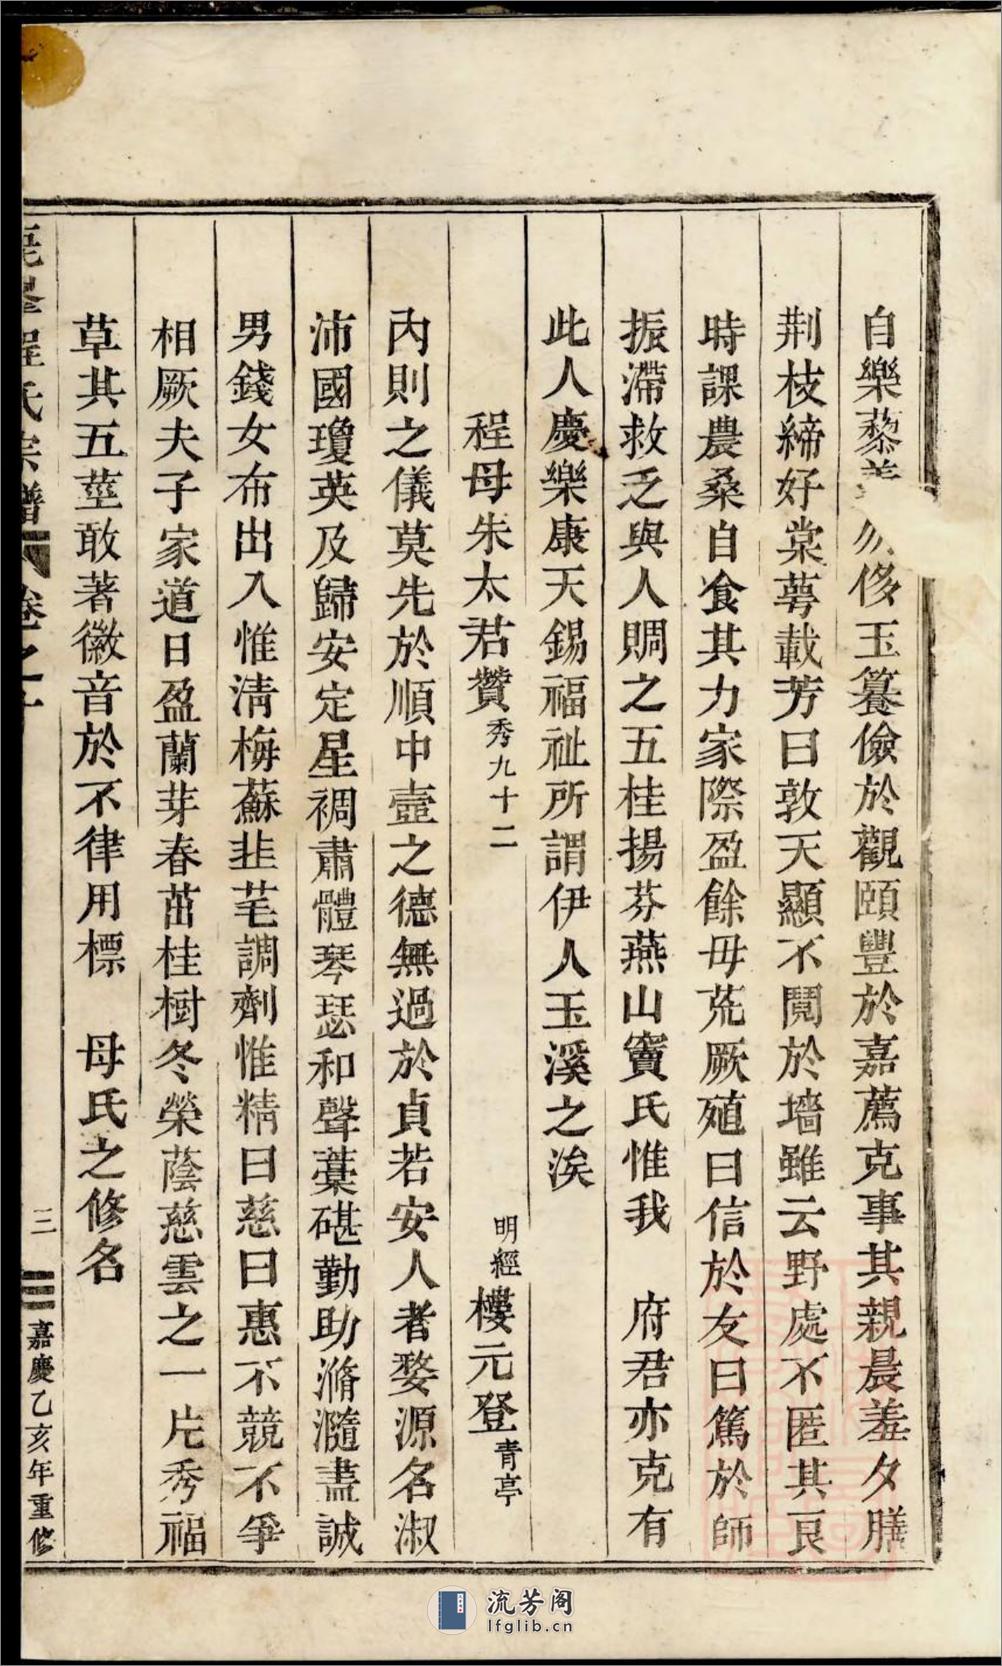 自樂藜羹勿侈玉饔儉於觀頤豐於嘉薦克事其親晨羞夕膳
荆枝締好棠萼載芳曰敦天顯不鬩於墻雖云野處不匿其良
時課農桑自食其力家際盈餘毋荒厥殖曰信於友曰篤於師
振滯救乏與人賙之五桂揚芬燕山竇氏惟我 府君亦克有
此人慶樂康天錫福祉所謂伊人玉溪之涘
程母朱太君贊 秀九十二 明經 樓元登 青亭
内則之儀莫先於順中壼之德無過於貞若安人者婺源名淑
沛國瓊英及歸安定星禂肅體琴瑟和聲藁碪勤助滫瀡盡誠
男錢女布出入惟淸梅蘇韭芼調劑惟精曰慈曰惠不競不爭
相厥夫子家道日盈蘭芽春茁桂樹冬榮蔭慈雲之一片秀福
草其五莖敢著徽音於不律用標 母氏之修名
程氏宗譜 卷之 三 嘉慶乙亥年重修
流芳阁
lfglib.cn